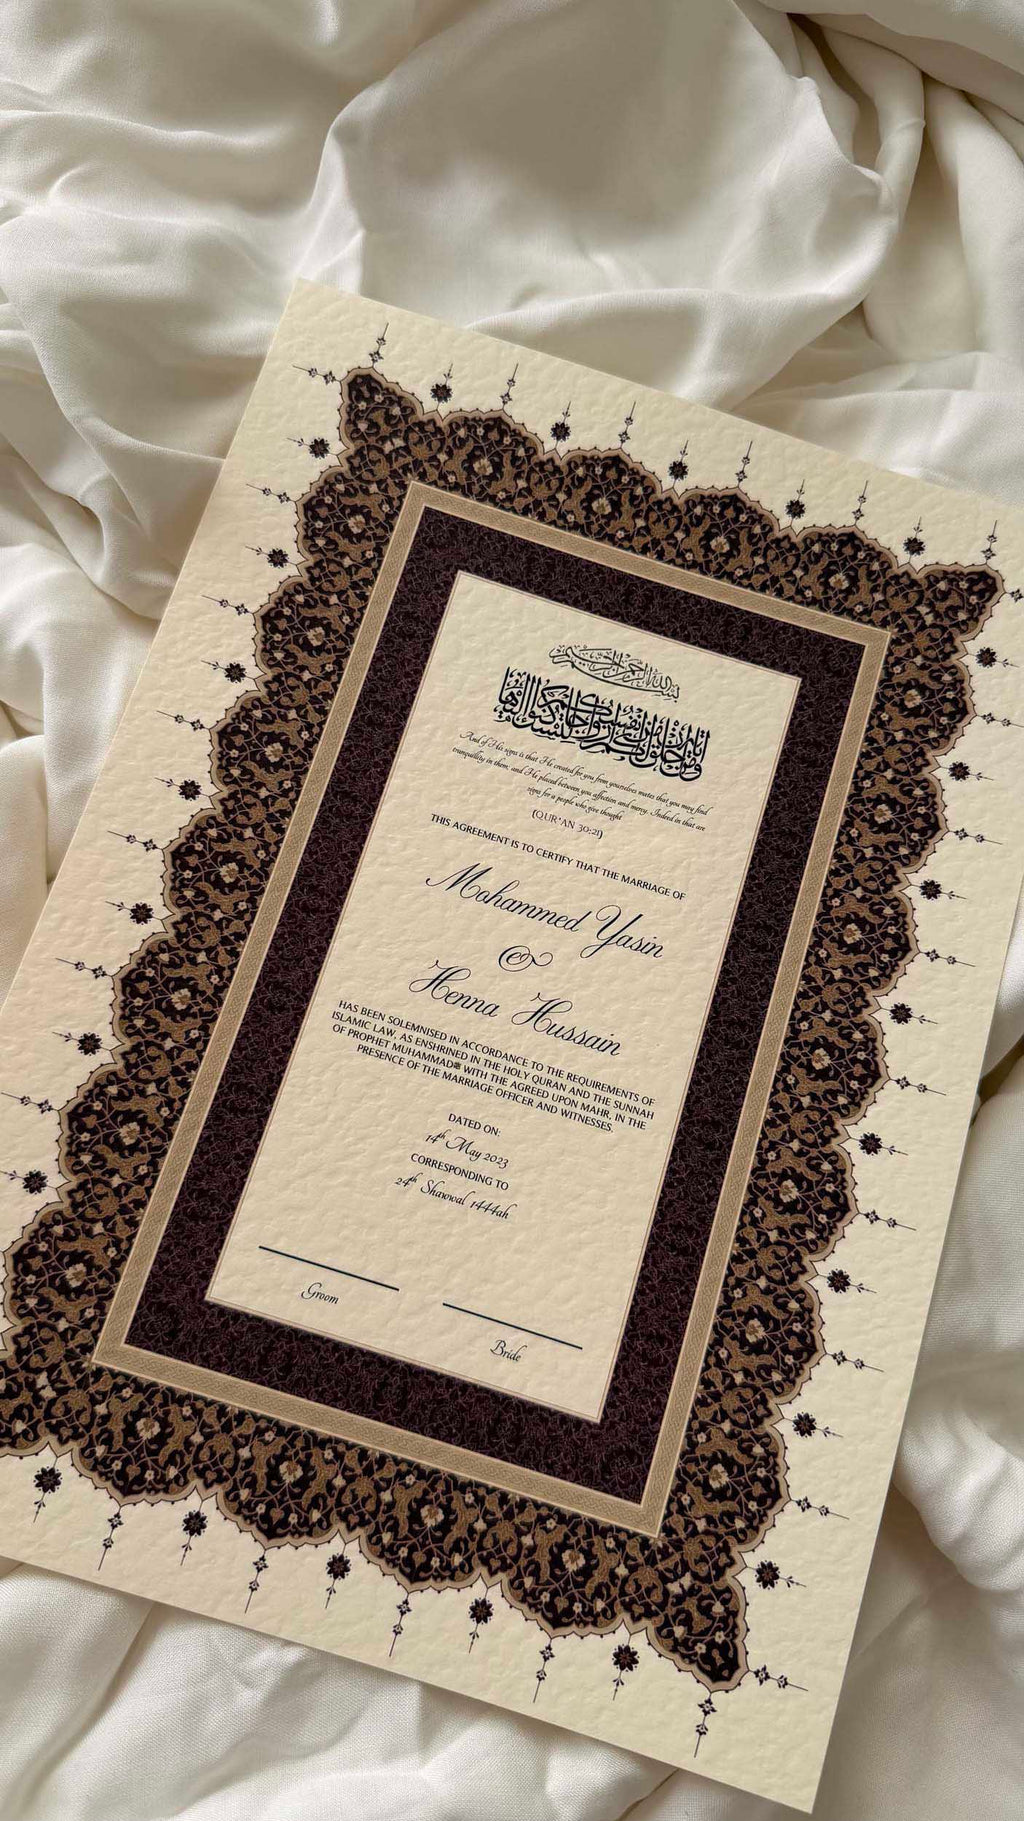 بسم الله الرحمن الرحيم
ومن آياته أن خلق لكم من أنفسكم أزواجا لتسكنوا إليها
And of His signs is that He created for you from yourselves mates that you may find
tranquillity in them; and He placed between you affection and mercy. Indeed in that are
signs for a people who give thought
(QUR'AN 30:21)
THIS AGREEMENT IS TO CERTIFY THAT THE MARRIAGE OF
Mohammed Yasin
&
Henna Hussain
HAS BEEN SOLEMNISED IN ACCORDANCE TO THE REQUIREMENTS OF
ISLAMIC LAW, AS ENSHRINED IN THE HOLY QURAN AND THE SUNNAH
OF PROPHET MUHAMMADﷺ WITH THE AGREED UPON MAHR, IN THE
PRESENCE OF THE MARRIAGE OFFICER AND WITNESSES.
DATED ON:
14th May 2023
CORRESPONDING TO
24th Shawwal 1444ah
Groom
Bride